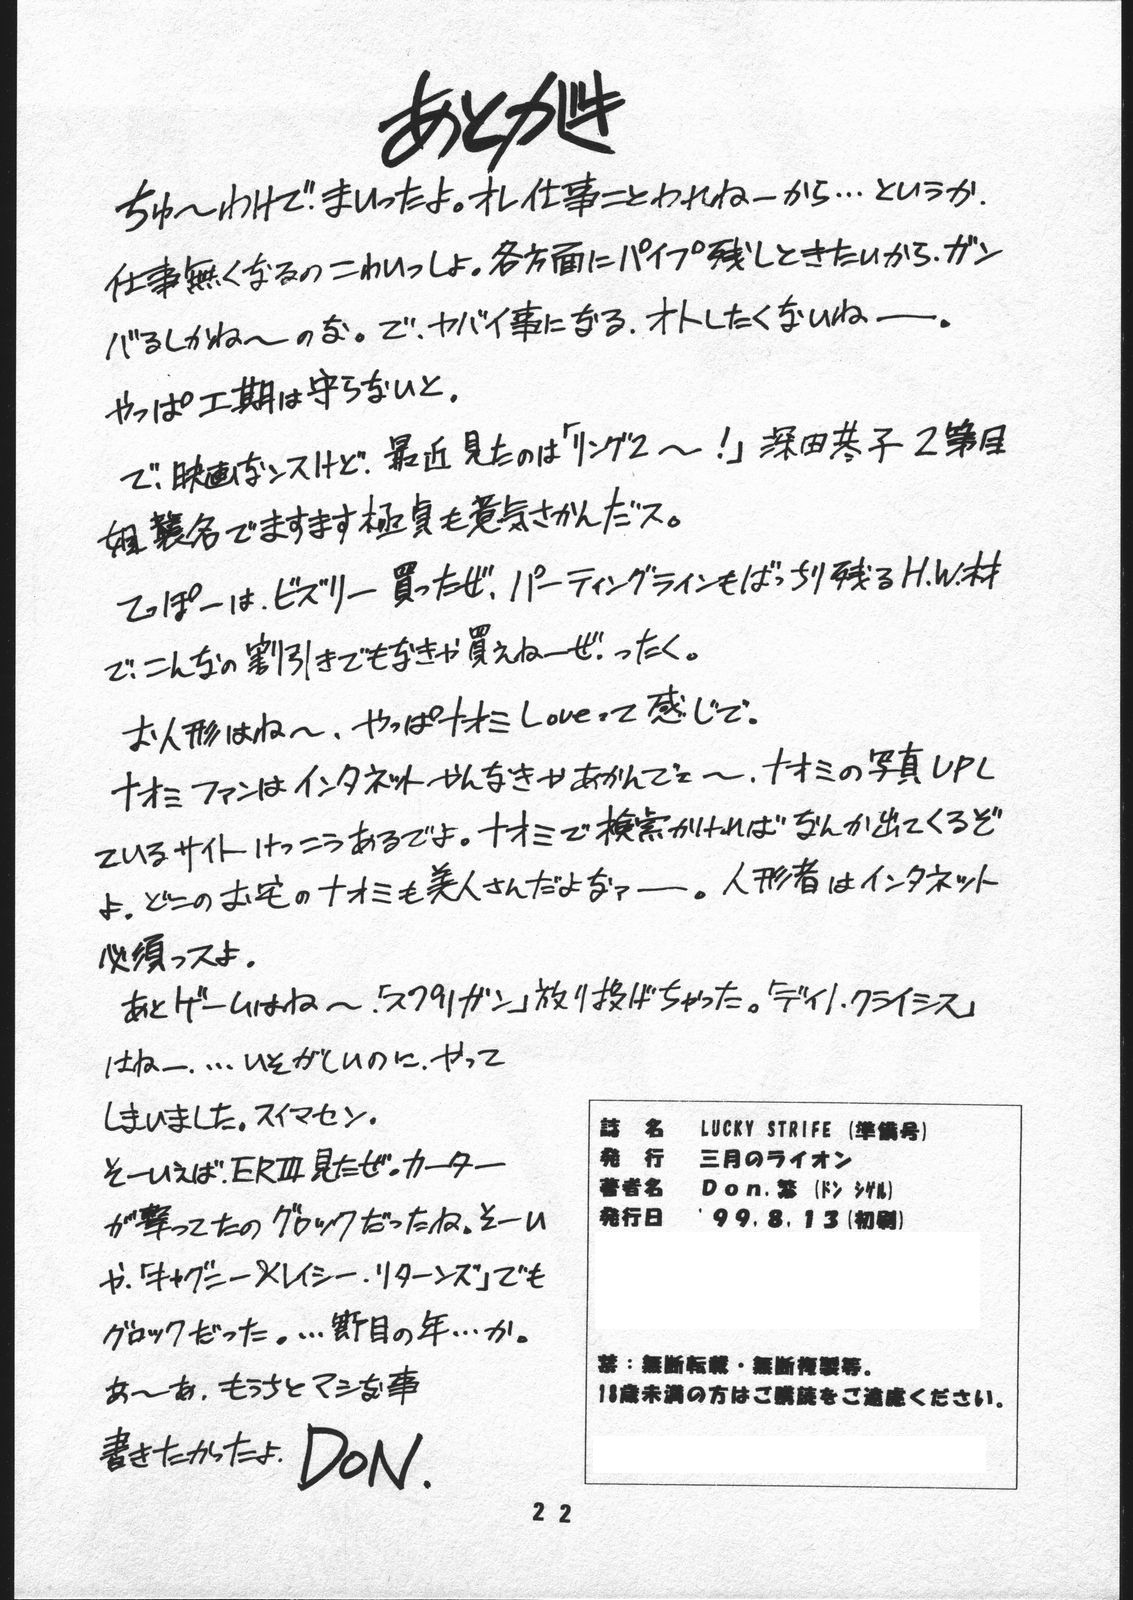 あとがき
ちゅ〜わけで、まいったよ。オレ仕事ことわれねーから…というか、
仕事無くなるのこわいっしょ。各方面にパイプ残しときたいから、ガン
バるしかね〜のな。で、ヤバイ事になる、オトしたくないねー。
やっぱ工期は守らないと。
で、映画なンスけど、最近見たのは「リング2〜!」深田恭子2第目
襲名でますます極貞も意気さかんだス。
てっぽーは、ビズリー買ったぜ、パーティングラインもばっちり残るH.W.材
で、こんなの割引きでもなきゃ買えねーぜ、ったく。
お人形はね〜、やっぱナオミLoveって感じで。
ナオミファンはインタネットやんなきゃあかんでェ〜、ナオミの写真UPし
ているサイトけっこうあるでよ。ナオミで検索かければなんか出てくるぞ
よ。どこのお宅のナオミも美人さんだよなァー。人形者はインタネット
必須っスよ。
あとゲームはね〜、「スプリガン」放り投げちゃった。「ディノ・クライシス」
はねー、…いそがしいのに、やって
しまいました。スイマセン。
そーいえば、ERⅢ見たぜ。カーター
が撃ってたのグロックだったね。そーい
や、「キャグニー&レイシー・リターンズ」でも
グロックだった。…断目の年…か。
あ〜あ、もうちとマシな事
書きたかったよ。DON.
誌 名 LUCKY STRIFE (準備号)
発 行 三月のライオン
著者名 Don.繁 (ドン シゲル)
発行日 '99.8.13(初刷)
禁:無断転載・無断複製等.
18歳未満の方はご購読をご遠慮ください.
22